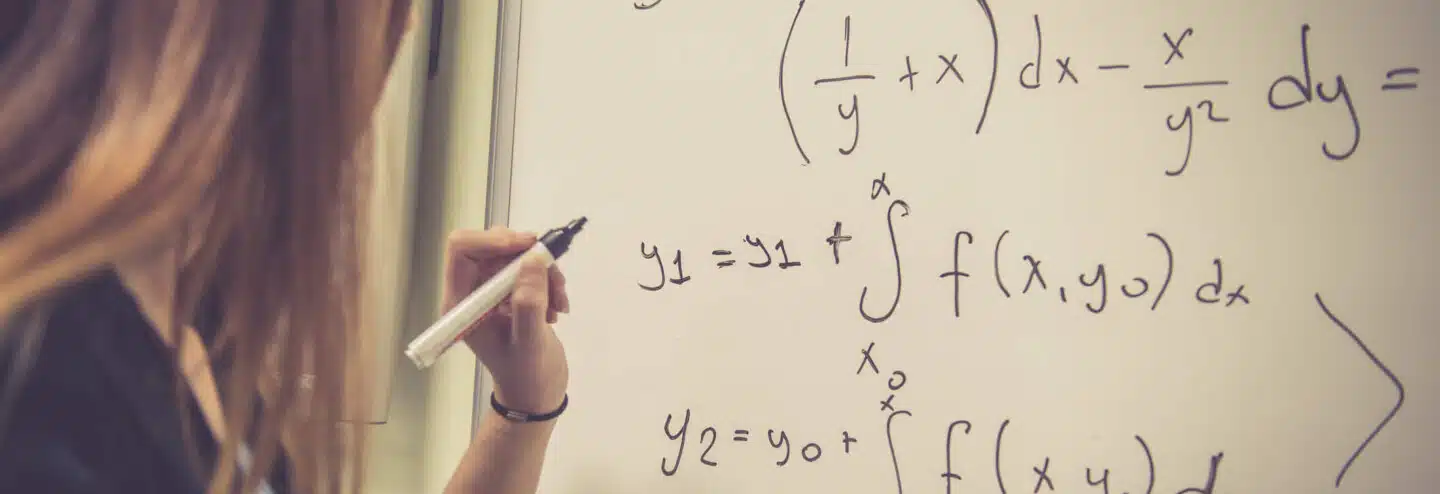 (1/y + x) dx - x/y² dy =
y1 = y1 + ∫ₓ₀ˣ f(x, y0) dx
y2 = y0 + ∫ˣ f(x y ) d